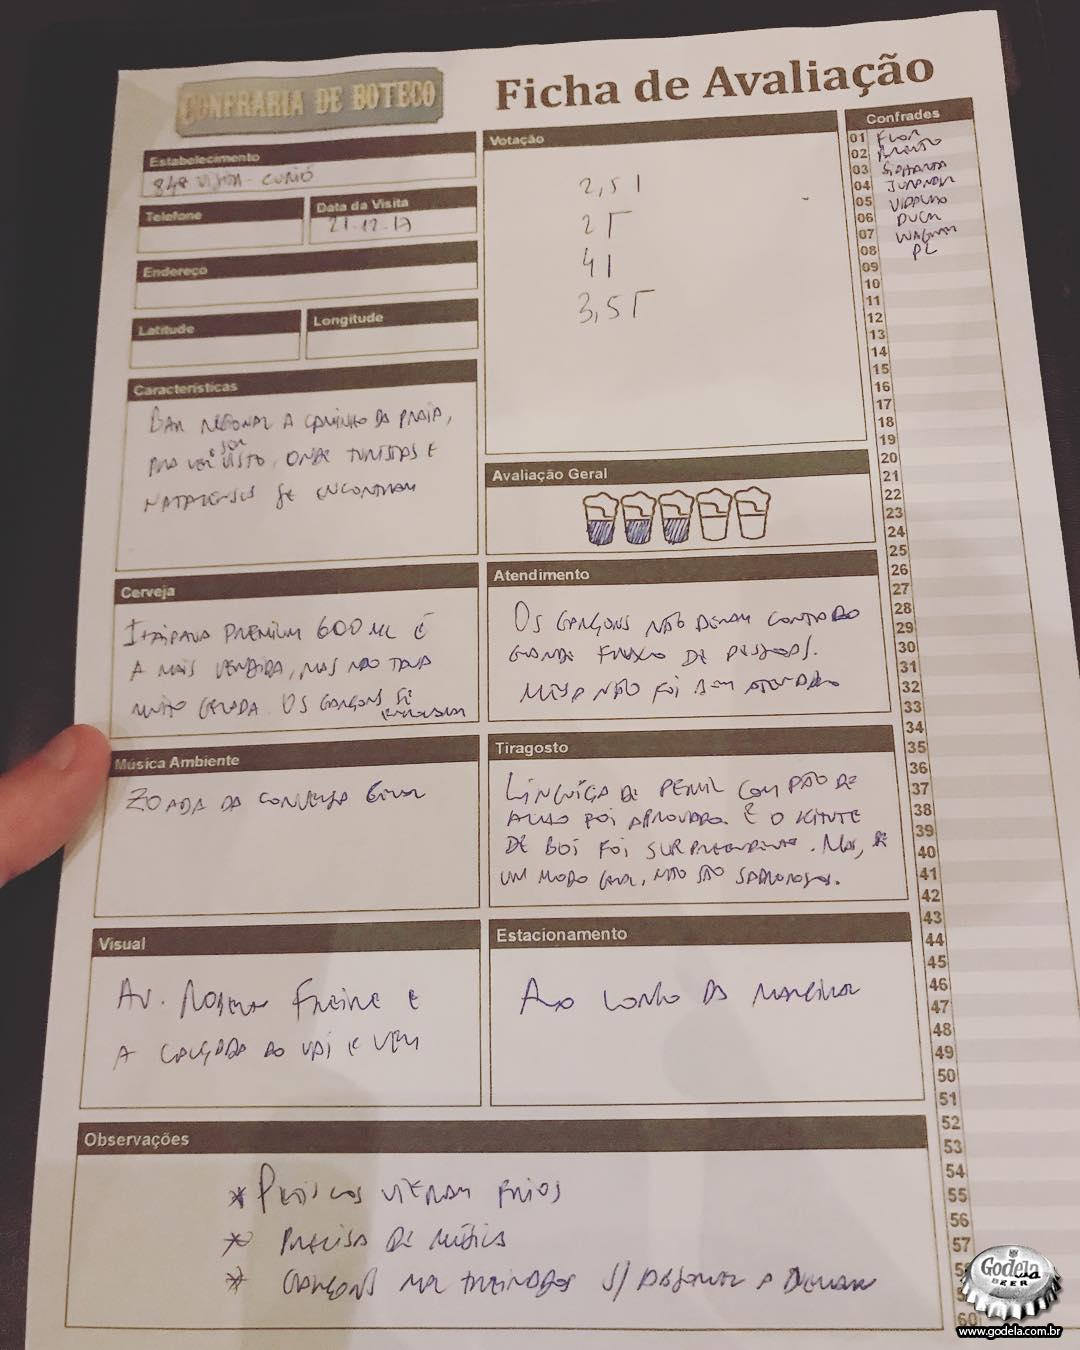 CONFRARIA DE BOTECO
Ficha de Avaliação
Estabelecimento
848 VISITA - CURIÓ
Telefone
Data da Visita
21-12-17
Endereço
Latitude
Longitude
Características
BAR REGIONAL A CAMINHO DA PRAIA,
PRA VER E SER VISTO, ONDE TURISTAS E
NATALENSES SE ENCONTRAM
Votação
2,5 |
2 Γ
4 |
3,5 Γ
Avaliação Geral
Cerveja
ITAIPAVA PREMIUM 600 ML É
A MAIS VENDIDA, MAS NÃO TAVA
MUITO GELADA. OS GARÇONS SE
Atendimento
OS GARÇONS NÃO DERAM CONTA DO
GRANDE FLUXO DE PESSOAS.
MESA NÃO FOI BEM ATENDIDA
Música Ambiente
ZOADA DA CONVERSA GERAL
Tiragosto
LINGUIÇA DE PERNIL COM PÃO DE
ALHO FOI APROVADO. E O KITUTE
DE BOI FOI SURPREENDENTE. MAS, DE
UM MODO GERAL, NÃO SÃO SABOROSOS.
Visual
AV. ROBERTO FREIRE E
A CALÇADA DO VAI E VEM
Estacionamento
AO LONGO DA MARGINAL
Observações
* PETISCOS VIERAM FRIOS
* PRECISA DE MÚSICA
* GARÇONS MAL TREINADOS S/ ABSORVER A DEMANDA
Confrades
01 FLOR
02
03
04 JUNINHO
05
06 DUCA
07 WAGNER
08 PC
09
10
11
12
13
14
15
16
17
18
19
20
21
22
23
24
25
26
27
28
29
30
31
32
33
34
35
36
37
38
39
40
41
42
43
44
45
46
47
48
49
50
51
52
53
54
55
56
57
60
Godela
BEER
www.godela.com.br